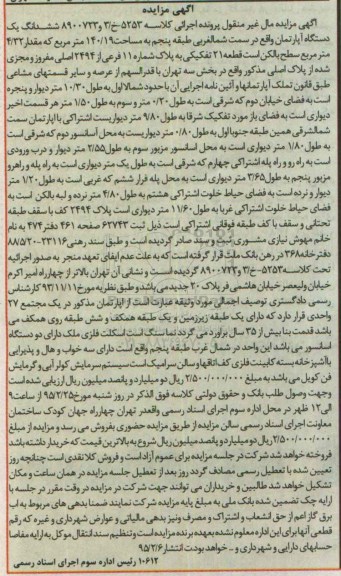 آگهی مزایده
آگهی مزایده مال غیر منقول پرونده اجرائی کلاسه ۵۲۵۳-خ/۳ و ۸۹۰۰۷۲۳ ششدانگ یک
دستگاه آپارتمان واقع در سمت شمالغربی طبقه پنجم به مساحت ۱۴۰/۱۹ متر مربع که مقدار ۴/۳۲
متر مربع سطح بالکن است قطعه ۲۱ تفکیکی به پلاک شماره ۱۱ فرعی از ۲۴۹۴ اصلی مفروز و مجزی
شده از پلاک اصلی مذکور واقع در بخش سه تهران با قدرالسهم از عرصه و سایر قسمتهای مشاعی
طبق قانون تملک آپارتمانها و آئین نامه اجرایی آن با حدود شمالا اول به طول ۱۰/۳۰ متر دیوار و پنجره
است به فضای خیابان دوم که شرقی است به طول ۰/۲۰ متر و سوم به طول ۱/۵۰ متر هر قسمت اخیر
دیواری است به فضای باز مورد تفکیک شرقا به طول ۹/۸۰ متر دیواریست اشتراکی با اپارتمان سمت
شمالشرقی همین طبقه جنوبا اول به طول ۰/۸۰ متر دیواریست به محل آسانسور دوم که شرقی است
به طول ۱/۸۰ متر دیواری است به محل اسانسور مزبور سوم به طول ۲/۵۵ متر دیوار و درب ورودی
است به راه رو و راه پله اشتراکی چهارم که شرقی است به طول یک متر دیواری است به راه پله و راهرو
مزبور پنجم به طول ۳/۶۵ متر دیواری است به محل پله فرار ششم که غربی است به طول ۱/۲۰ متر
دیوار و نرده است به فضای حیاط خلوت اشتراکی هشتم به طول ۴/۸۰ متر نرده و لبه بالکن است به
فضای حیاط خلوت اشتراکی غربا به طول ۱۱/۶۰ متر دیواری است پلاک ۲۴۹۴ کف با سقف طبقه
تحتانی و سقف با کف طبقه فوقانی اشتراکی است ذیل ثبت ۶۲۷۴۳ صفحه ۴۶۱ دفتر ۴۷۴ به نام
خانم مهوش نیازی مشوری ثبت و سند صادر گردیده است و طبق سند رهنی ۲۳۱۱۶-۸۸/۵/۲۰
دفترخانه ۳۶۸ در رهن بانک ملت قرار گرفته است که به علت عدم ایفای تعهد منجر به صدور اجرائیه
تحت کلاسه ۵۲۵۳-خ/۳ و ۸۹۰۰۷۲۳ گردیده است و نشانی آن تهران بالاتر از چهارراه امیر اکرم
خیابان ولیعصر خیابان هاشمی فر پلاک ۲۰ جدید می باشد و طبق نظریه مورخ ۹۳/۱۱/۱۱ کارشناس
رسمی دادگستری توصیف اجمالی مورد وثیقه عبارت است از اپارتمان مذکور در یک مجتمع ۲۷
واحدی قرار دارد که دارای یک طبقه زیرزمین و یک طبقه همکف و شش طبقه روی همکف می
باشد قدمت بنا بیش از ۳۵ سال براورد می گردد نما سنگ است اسکلت فلزی ملک دارای دو دستگاه
اسانسور می باشد این واحد در شمال غرب طبقه پنجم واقع است دارای سه خواب و هال و پذیرایی
با آشپزخانه بسته کابینت فلزی کف اتاقها و سالن سرامیک است سیستم سرمایش کولر آبی و گرمایش
فن کویل می باشد به مبلغ ۲/۵۰۰/۰۰۰/۰۰۰ ریال دو میلیارد و پانصد میلیون ریال ارزیابی شده است
وجهت وصول طلب بانک و حقوق دولتی کلاسه فوق الذکر در روز شنبه مورخ ۹۵/۲/۲۵ از ساعت ۹
الی ۱۲ ظهر در محل اداره سوم اجرای اسناد رسمی واقع در تهران چهارراه جهان کودک ساختمان
معاونت اجرای اسناد رسمی سالن مزایده از طریق مزایده حضوری بفروش می رسد و مزایده از مبلغ
۲/۵۰۰/۰۰۰/۰۰۰ ریال دو میلیارد و پانصد میلیون ریال شروع به بالاترین قیمت که خریدار داشته باشد
فروخته خواهد شد شرکت در جلسه مزایده برای عموم آزاد است و فروش کلا نقدی است چنانچه روز
تعیین شده با تعطیل رسمی مصادف گردد روز بعد از تعطیل جلسه مزایده در همان ساعت و مکان
تشکیل خواهد شد طالبین و خریداران می توانند جهت شرکت در مزایده در وقت مقرر در جلسه با
ارایه چک تضمین شده بانک ملی به مبلغ پایه مزایده شرکت نمایند ضمنا بدهی های مربوط به اب
برق گاز اعم از حق انشعاب و اشتراک و مصرف و نیز بدهی مالیاتی و عوارض شهرداری و غیره که رقم
قطعی آنها برای این اداره معلوم نشده بعهده برنده مزایده است و تنظیم سند انتقال موکل به ارایه مفاصا
حسابهای دارایی و شهرداری و .. خواهد بود ت انتشار ۹۵/۲/۶
۱۰۶۱۲ رئیس اداره سوم اجرای اسناد رسمی